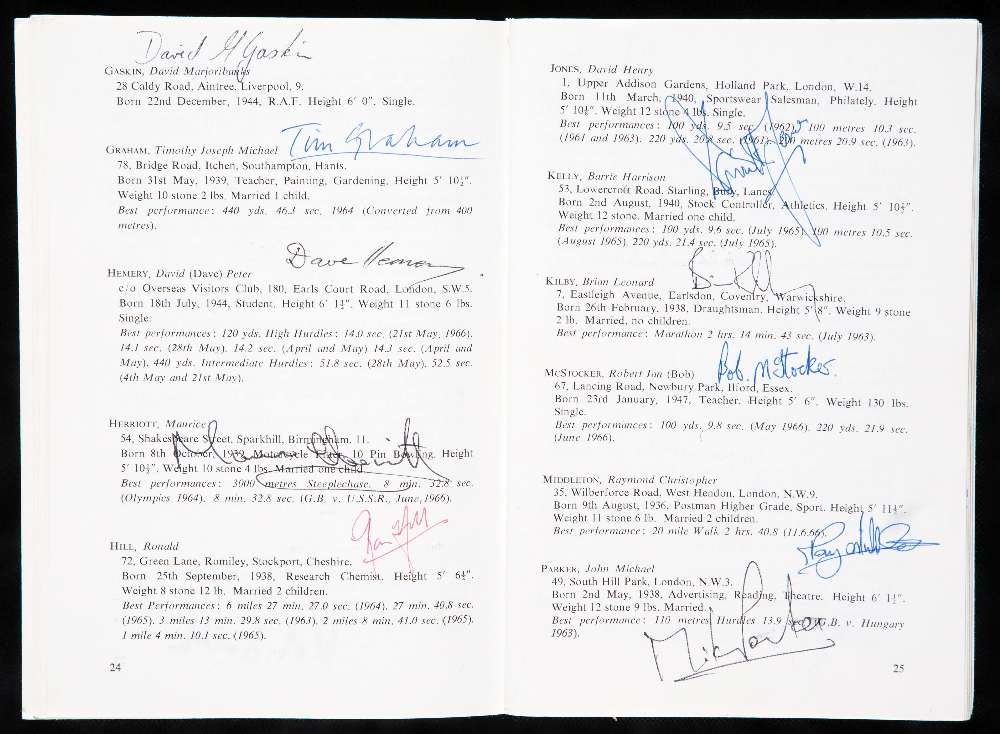 David M Gaskin
GASKIN, David Marjoribanks
28 Caldy Road, Aintree, Liverpool, 9.
Born 22nd December, 1944, R.A.F. Height 6' 0". Single.
Tim Graham
GRAHAM, Timothy Joseph Michael
78, Bridge Road, Itchen, Southampton, Hants.
Born 31st May, 1939, Teacher, Painting, Gardening, Height 5' 10½".
Weight 10 stone 2 lbs. Married 1 child.
Best performance: 440 yds. 46.3 sec. 1964 (Converted from 400
metres).
Dave Hemery
HEMERY, David (Dave) Peter
c/o Overseas Visitors Club, 180, Earls Court Road, London, S.W.5.
Born 18th July, 1944, Student. Height 6' 1¼". Weight 11 stone 6 lbs.
Single.
Best performances: 120 yds. High Hurdles: 14.0 sec. (21st May, 1966).
14.1 sec. (28th May). 14.2 sec. (April and May) 14.3 sec. (April and
May). 440 yds. Intermediate Hurdles: 51.8 sec. (28th May). 52.5 sec.
(4th May and 21st May).
HERRIOTT, Maurice
54, Shakespeare Street, Sparkhill, Birmingham, 11.
Born 8th October, 1939, Motorcycle 10 Pin Bowling. Height
5' 10½". Weight 10 stone 4 lbs. Married one child.
Maurice Herriott
Best performances: 3000 metres Steeplechase. 8 min. 32.8 sec.
(Olympics 1964). 8 min. 32.8 sec. (G.B. v. U.S.S.R., June, 1966).
Ron Hill
HILL, Ronald
72, Green Lane, Romiley, Stockport, Cheshire.
Born 25th September, 1938, Research Chemist. Height 5' 6½".
Weight 8 stone 12 lb. Married 2 children.
Best Performances: 6 miles 27 min. 27.0 sec. (1964). 27 min. 40.8 sec.
(1965). 3 miles 13 min. 29.8 sec. (1963). 2 miles 8 min. 41.0 sec. (1965).
1 mile 4 min. 10.1 sec. (1965).
24
JONES, David Henry
1, Upper Addison Gardens, Holland Park, London, W.14.
Born 11th March, 1940, Sportswear Salesman, Philately. Height
5' 10½". Weight 12 stone 4 lbs. Single.
Best performances: 100 yds. 9.5 sec. (1962), 100 metres 10.3 sec.
(1961 and 1963). 220 yds. 20.8 sec. (1961). 200 metres 20.9 sec. (1963).
KELLY, Barrie Harrison
53, Lowercroft Road, Starling, Bury, Lancs.
Born 2nd August, 1940, Stock Controller, Athletics. Height 5' 10½".
Weight 12 stone. Married one child.
Best performances: 100 yds. 9.6 sec. (July 1965). 100 metres 10.5 sec.
(August 1965). 220 yds. 21.4 sec. (July 1965).
KILBY, Brian Leonard
7, Eastleigh Avenue, Earlsdon, Coventry, Warwickshire.
Born 26th February, 1938, Draughtsman. Height 5' 8". Weight 9 stone
2 lb. Married, no children.
Best performance: Marathon 2 hrs. 14 min. 43 sec. (July 1963).
Bob. McStocker.
MCSTOCKER, Robert Ian (Bob)
67, Lancing Road, Newbury Park, Ilford, Essex.
Born 23rd January, 1947, Teacher. Height 5' 6". Weight 130 lbs.
Single.
Best performances: 100 yds. 9.8 sec. (May 1966). 220 yds. 21.9 sec.
(June 1966).
MIDDLETON, Raymond Christopher
35, Wilberforce Road, West Hendon, London, N.W.9.
Born 9th August, 1936, Postman Higher Grade, Sport. Height 5' 11½".
Weight 11 stone 6 lb. Married 2 children.
Best performance: 20 mile Walk 2 hrs. 40.8 (11.6.66).
PARKER, John Michael
49, South Hill Park, London, N.W.3.
Born 2nd May, 1938, Advertising, Reading, Theatre. Height 6' 1½".
Weight 12 stone 9 lbs. Married.
Best performance: 110 metres Hurdles 13.9 sec. (G.B. v. Hungary
1963).
Mike Parker
25